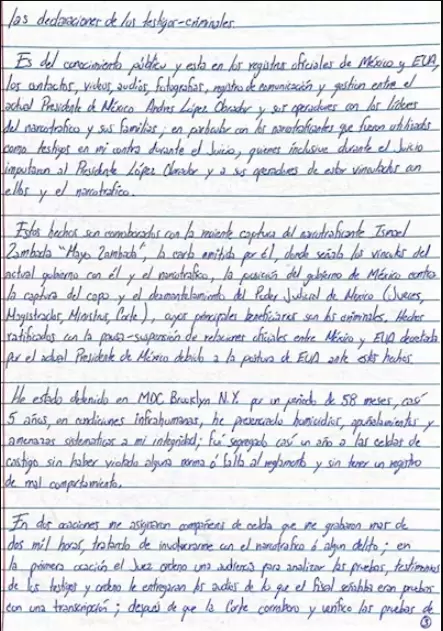 las declaraciones de los testigos-criminales.
Es del conocimiento público y esta en los registros oficiales de México y EUA,
los contactos, videos, audios, fotografias, registro de comunicación y gestion entre el
actual Presidente de México Andres López Obrador y sus operadores con los lideres
del narcotrafico y sus familias; en particular con los narcotraficantes que fueron utilizados
como testigos en mi contra durante el Juicio, quienes inclusive durante el Juicio
imputaron al Presidente López Obrador y a sus operadores de estar vinculados con
ellos y el narcotrafico.
Estos hechos son corroborados con la reciente captura del narcotraficante Ismael
Zambada "Mayo Zambada", la carta emitida por él, donde señala los vinculos del
actual gobierno con él y el narcotrafico, la posición del gobierno de México contra
la captura del capo y el desmantelamiento del Poder Judicial de Mexico (Jueces,
Magistrados, Ministros, Corte), cuyos principales beneficiarios son los criminales. Hechos
ratificados con la pausa-suspensión de relaciones oficiales entre México y EUA decretada
por el actual Presidente de México debido a la postura de EUA ante estos hechos.
He estado detenido en MDC Brooklyn N.Y. por un periodo de 58 meses, casi
5 años, en condiciones infrahumanas, he presenciado homicidios, apuñalamientos y
amenazas sistematicas a mi integridad; fui segregado casi un año a las celdas de
castigo sin haber violado alguna norma ó falta al reglamento y sin tener un registro
de mal comportamiento.
En dos ocasiones me asignaron compañeros de celda que me grabaron mas de
dos mil horas, tratando de involucrarme con el narcotrafico ó algun delito; en
la primera ocación el Juez ordeno una audiencia para analizar las pruebas, testimonios
de los testigos y ordeno le entregaran los audios de lo que el fiscal señalaba eran pruebas
con una transcripción; después de que la Corte corroboro y verifico las pruebas de
③